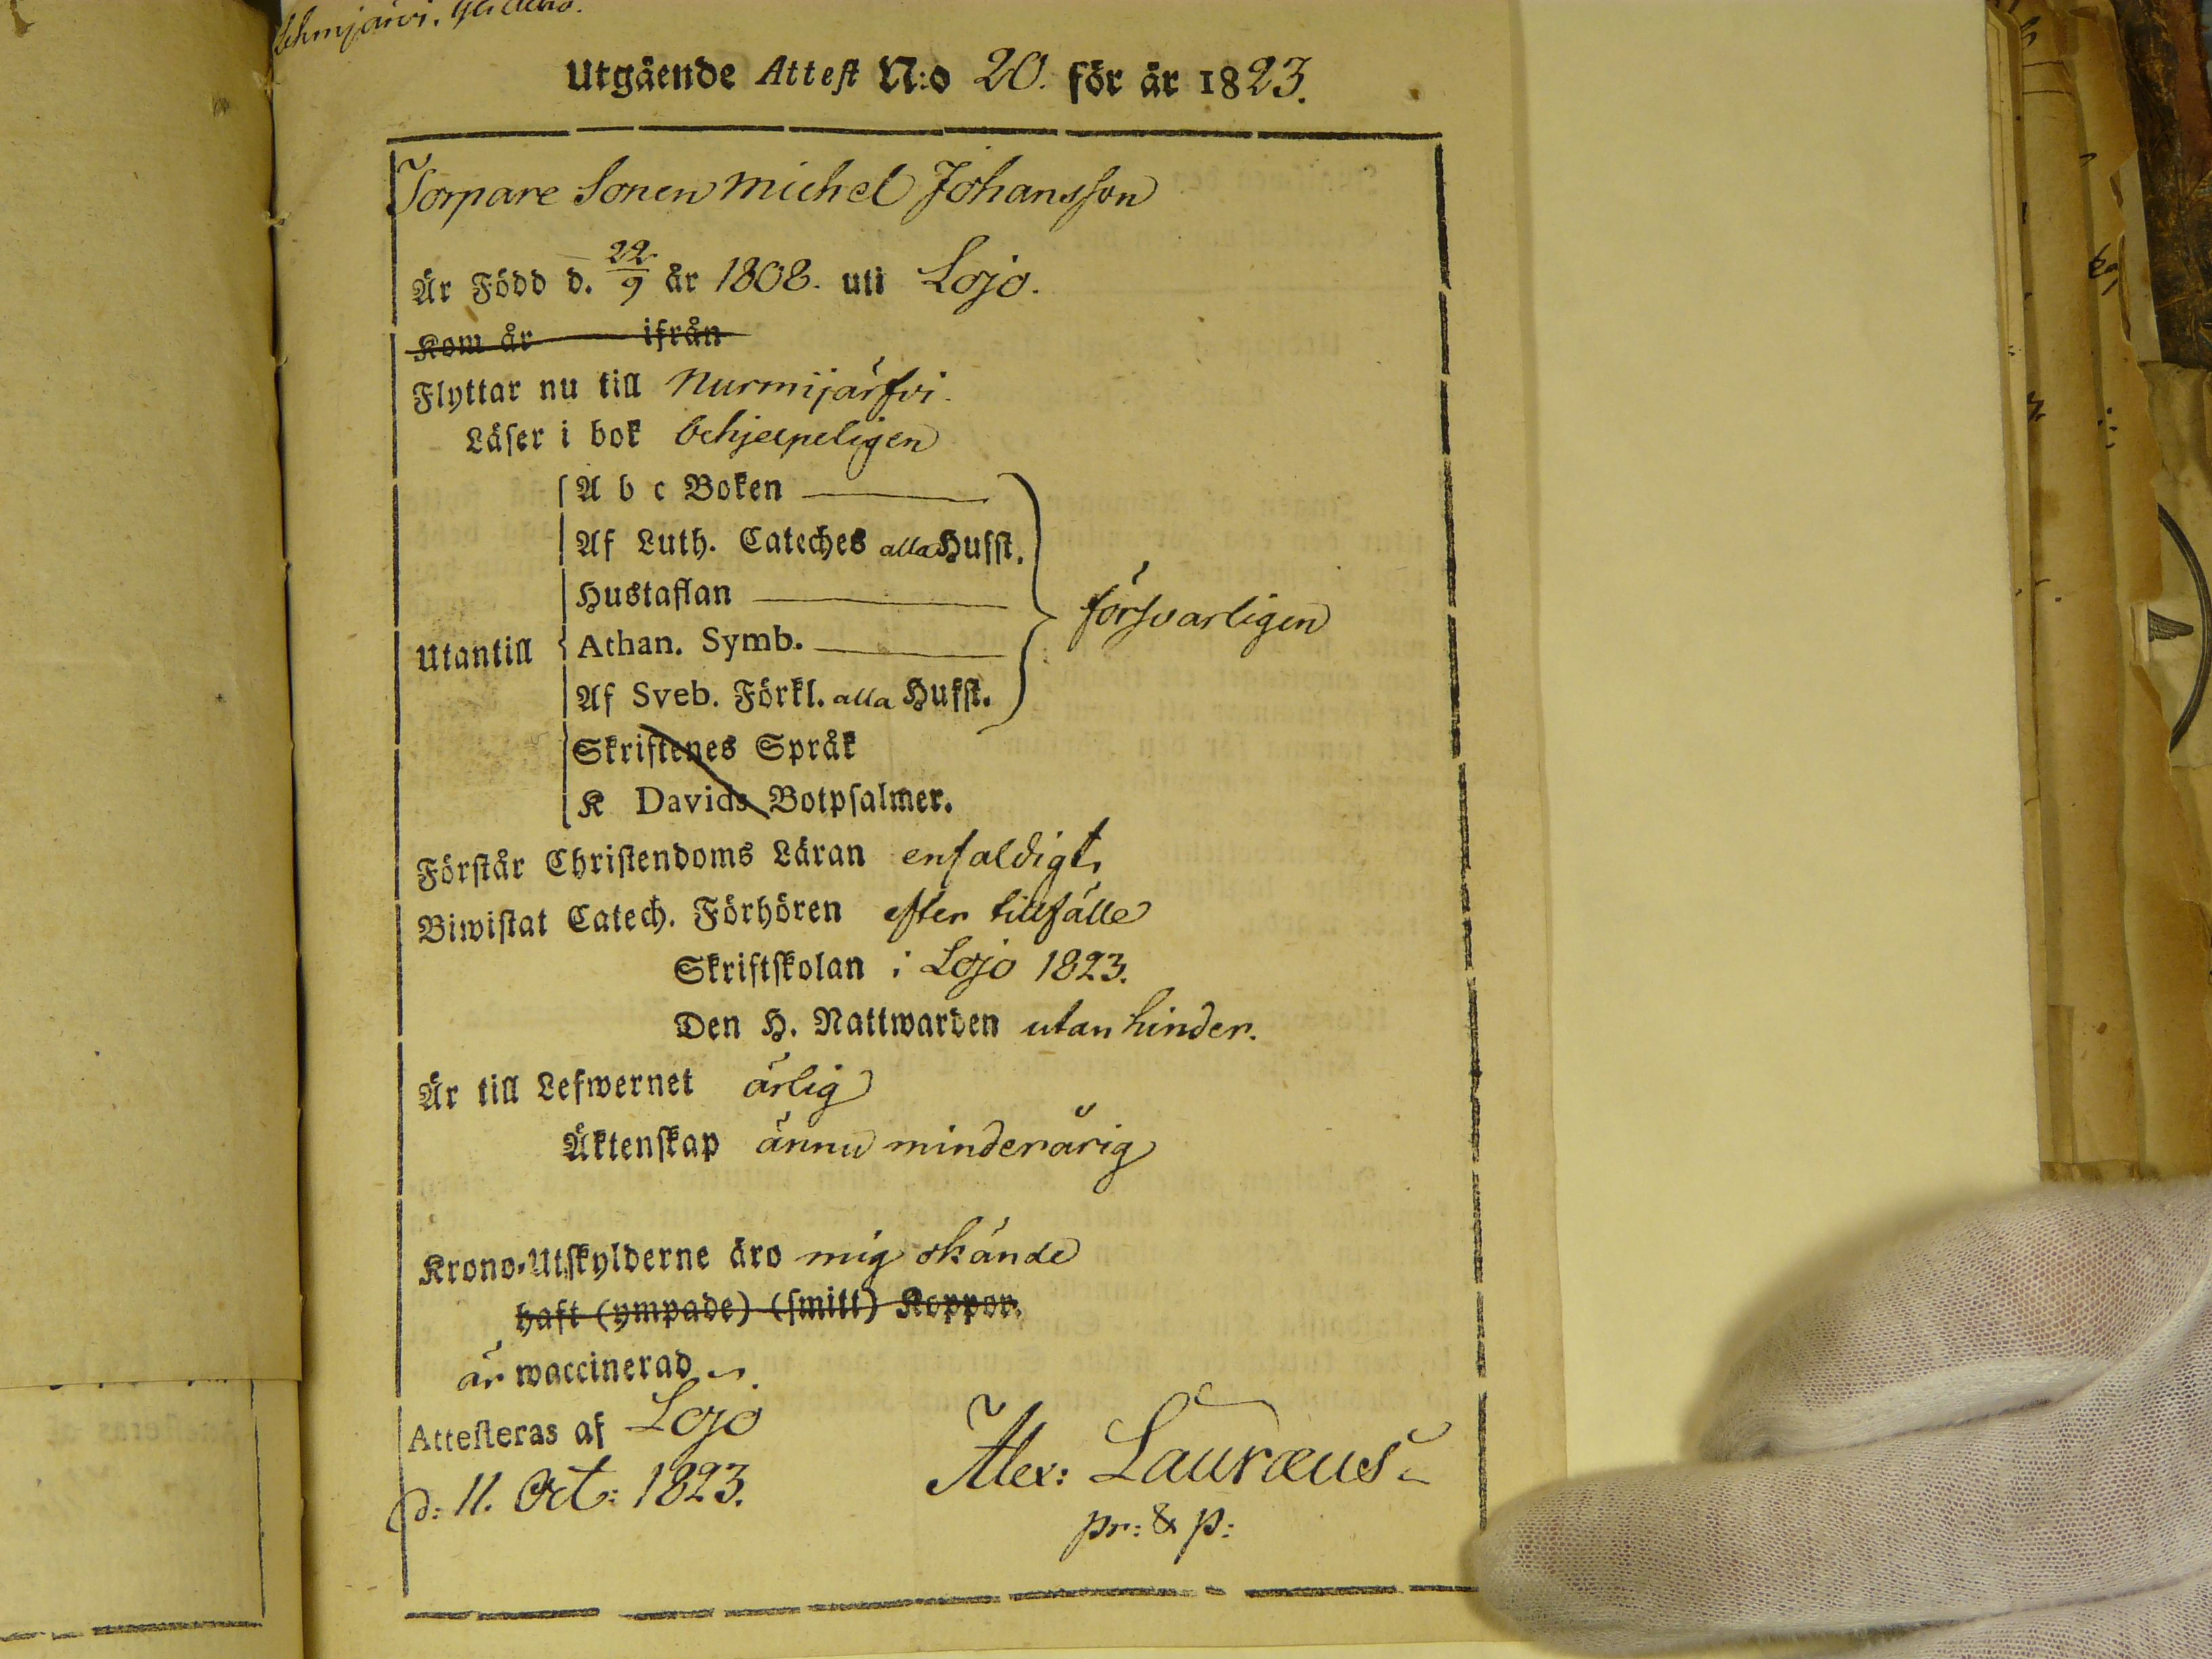 Utgående Attest N:o 20. för år 1823.
Torpare Sonen Michel Johansson
Är Född d. 22/9 år 1808. uti Lojo.
Kom år ifrån
Flyttar nu till Nurmijärfvi.
Läser i bok behjelpeligen
A b c Boken
Af Luth. Cateches alla Hufst.
Hustaflan
försvarligen
Utantill
Athan. Symb.
Af Sveb. Förkl. alla Hufst.
Skriftenes Språk
K Davids Botpsalmer.
Förstår Christendoms Läran enfaldigt,
Biwistat Catech. Förhören efter tillfälle
Skriftskolan i Lojo 1823.
Den H. Nattwarden utan hinder.
Är till Lefwernet ärlig
Äktenskap ännu minderårig
Krono-Utskylderne äro mig okände
haft (ympade) (smitt) Koppor.
är waccinerad
Attesteras af Lojo
d: 11. Oct: 1823.
Alex: Lauræus
pr: & p: